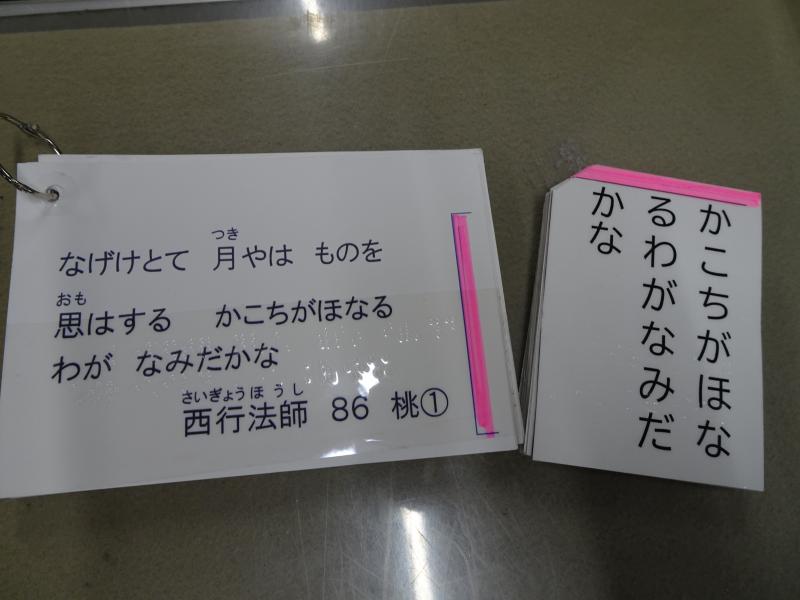 なげけとて 月やは ものを
つき
思はする かこちがほなる
おも
わが なみだかな
西行法師 86 桃①
さいぎょうほうし
かこちがほな
るわがなみだ
かな